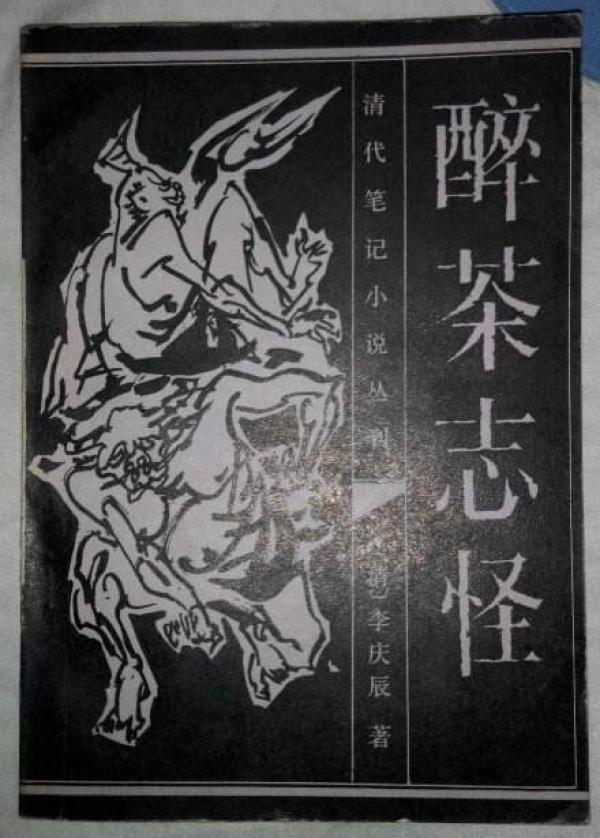 醉茶志怪
清代笔记小说丛刊
[清]李庆辰 著